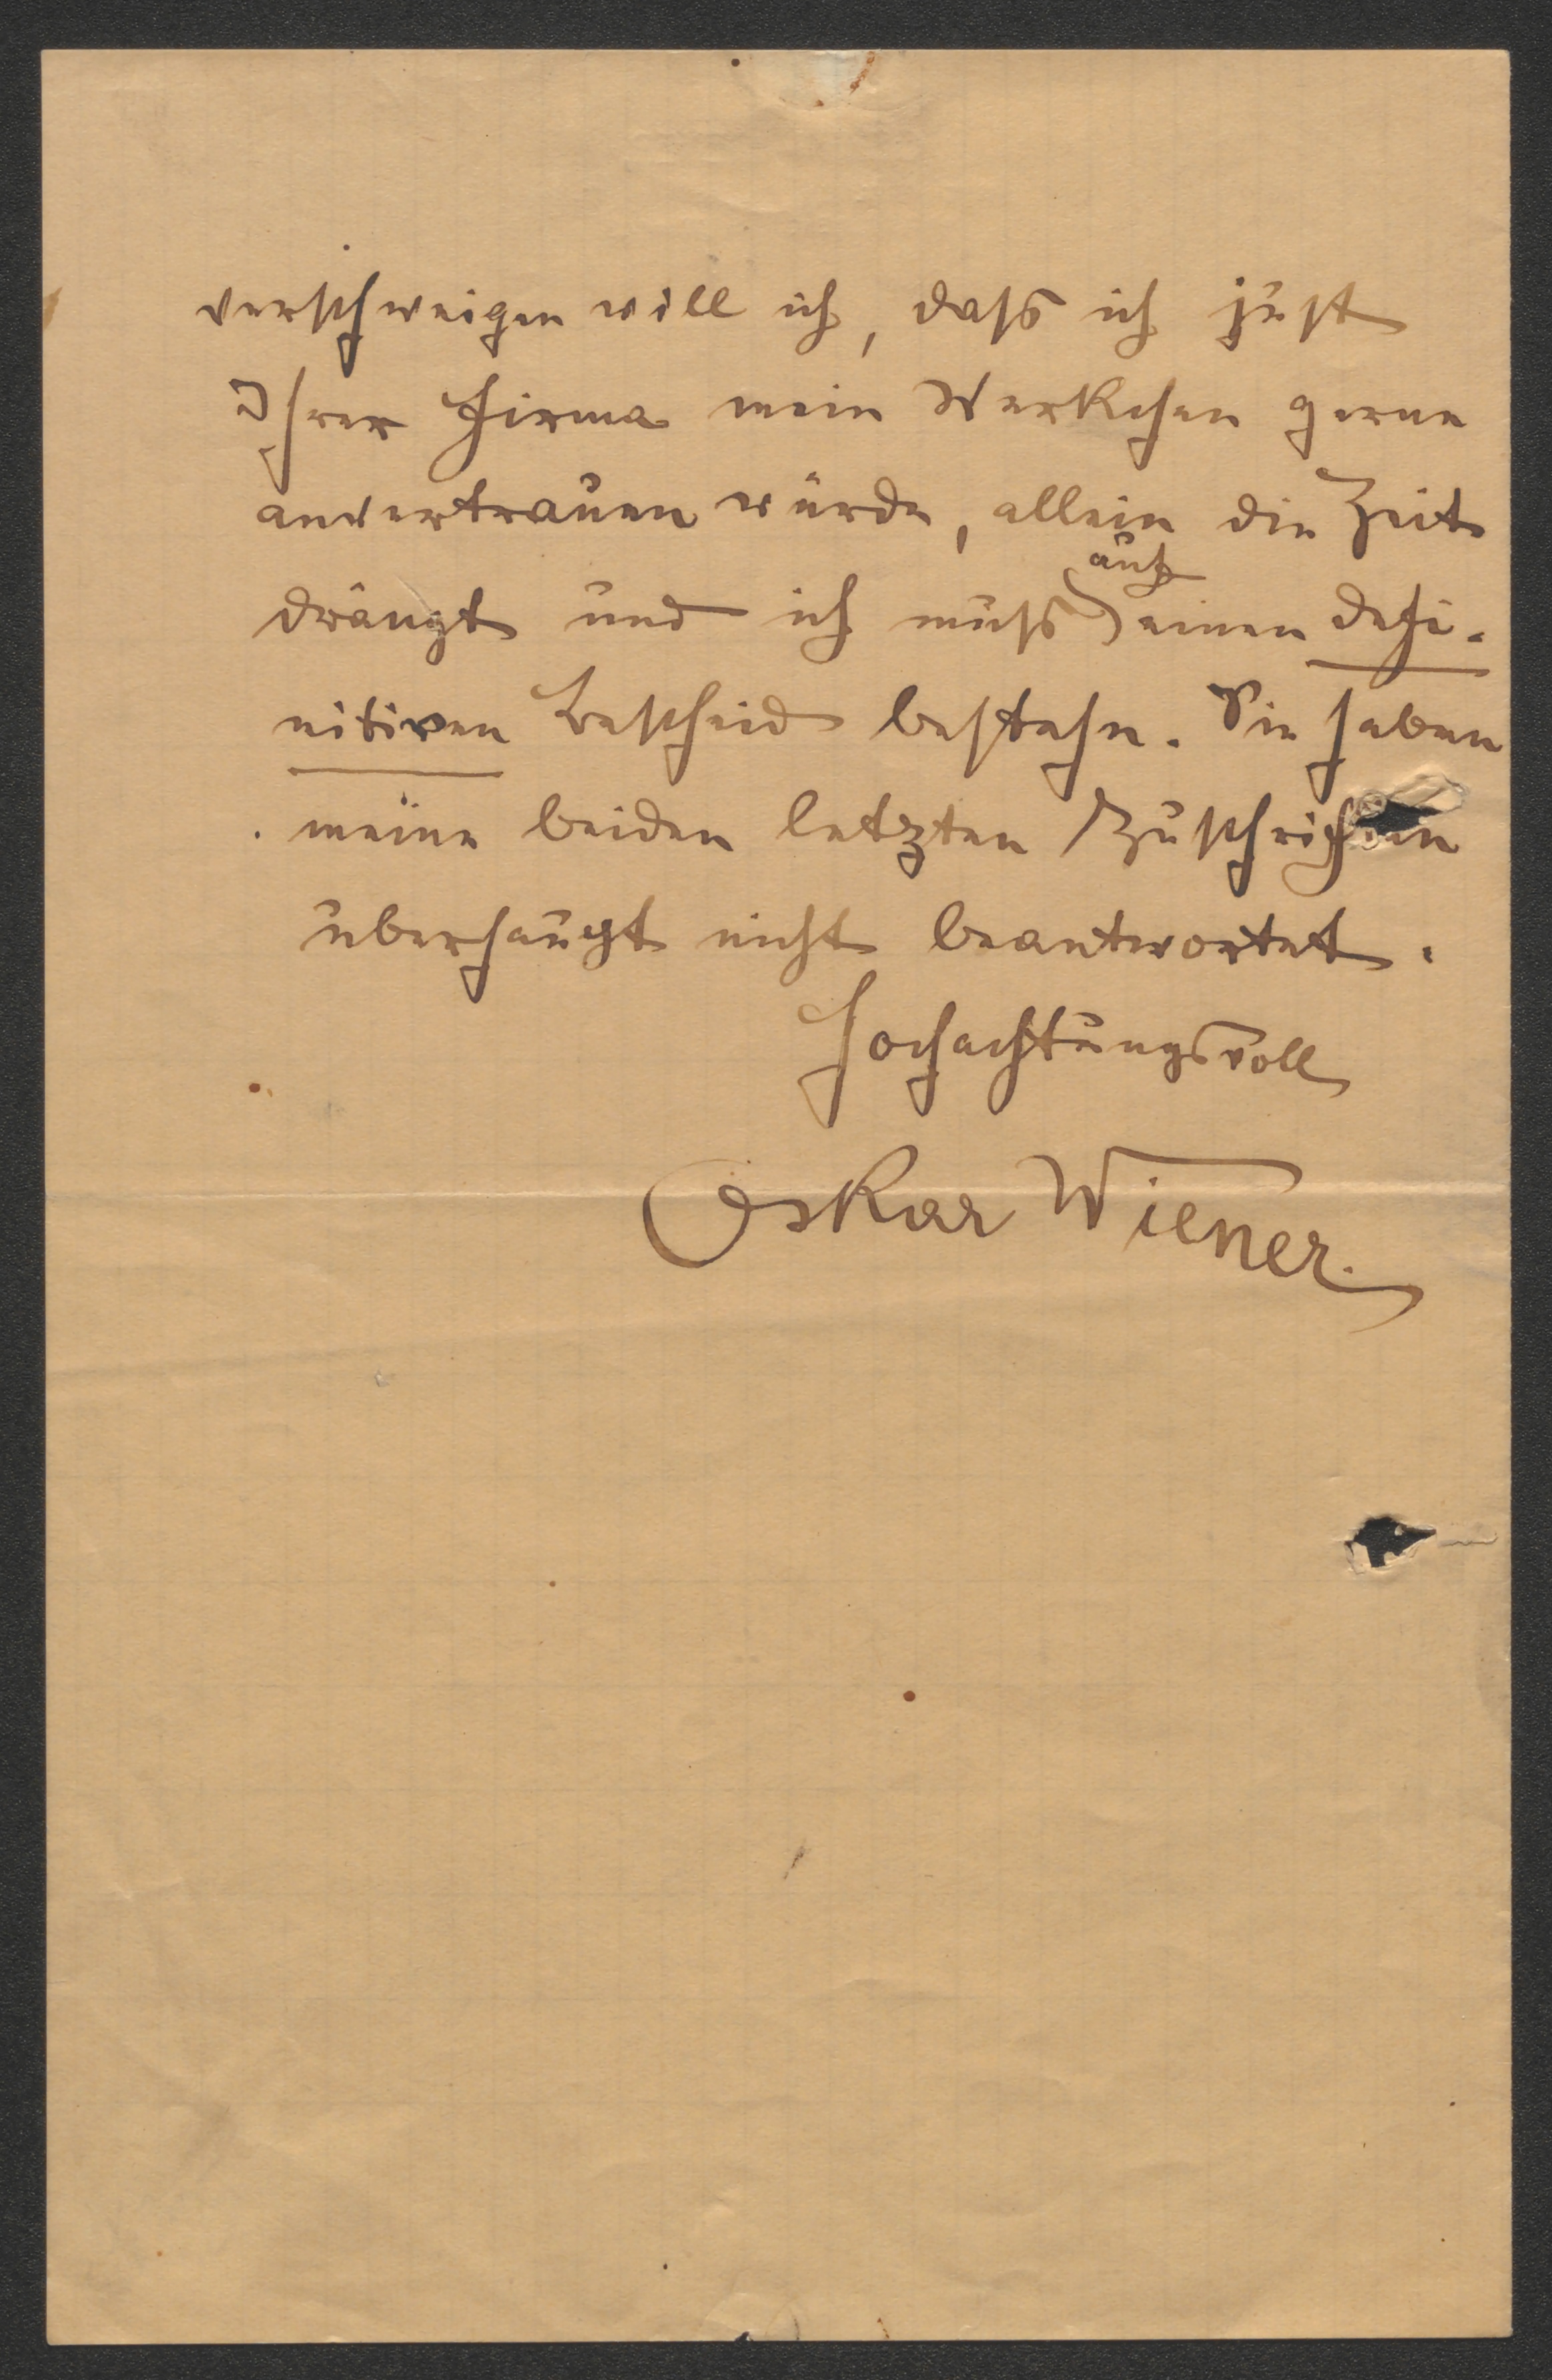 verschweigen will ich, dass ich just
Ihrer Firma mein Werkchen gerne
anvertrauen würde, allein die Zeit
drängt und ich muss auf einen defi-
nitiven Bescheid bestehn. Sie haben
meine beiden letzten Zuschriften
überhaupt nicht beantwortet.
Hochachtungsvoll
Oskar Wiener.